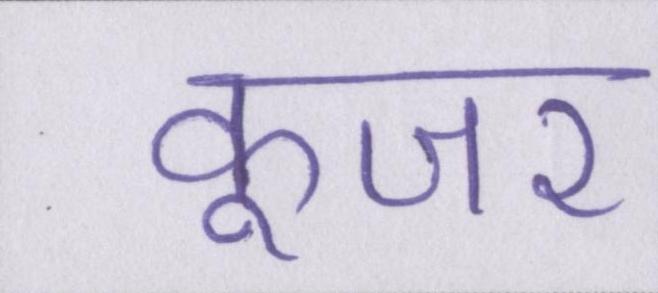 कूजर